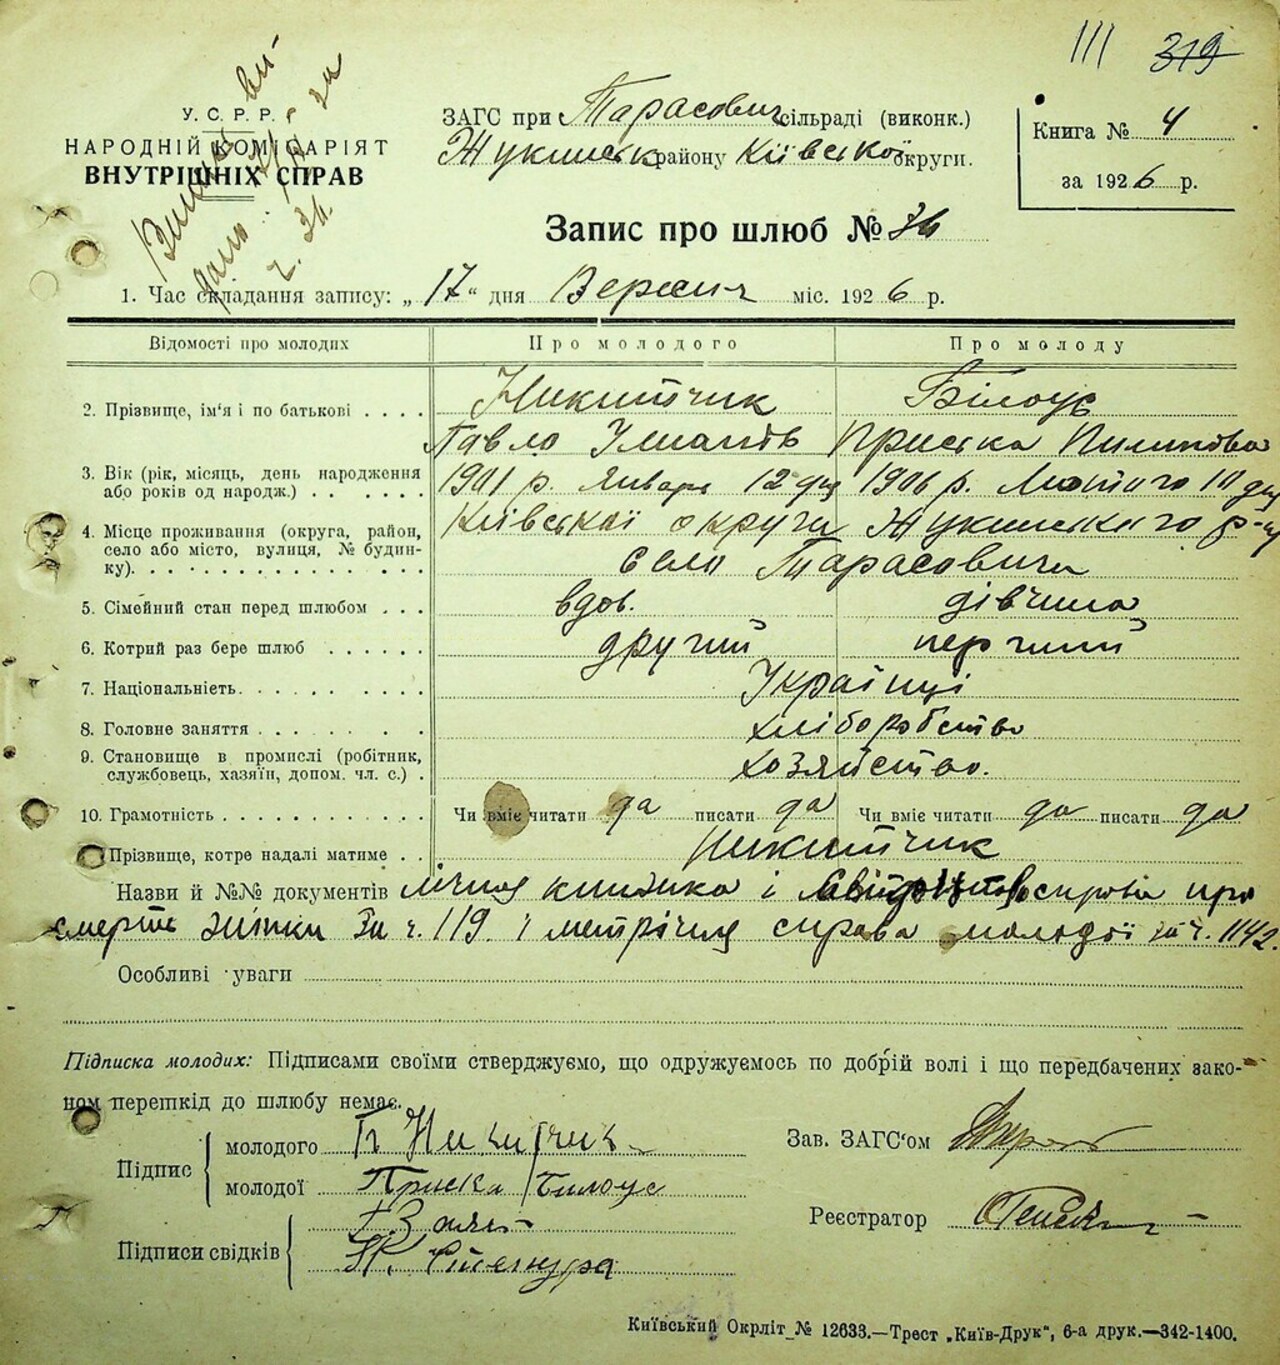 111 319
У. С. Р. Р.
НАРОДНІЙ КОМІСАРІЯТ
ВНУТРІШНІХ СПРАВ
ЗАГС при Тарасович сільраді (виконк.)
Жукинськ району Київської округи.
Книга № 4
за 1926 р.
Запис про шлюб №
1. Час складання запису: „17“ дня Вересня міс. 1926 р.
Відомості про молодих Про молодого Про молоду
2. Прізвище, ім'я і по батькові . . . . Никитчик Білоус
Павло Приська Пилипова
3. Вік (рік, місяць, день народження 1901 р. Января 12 дня 1906 р. Лютого 10 дня
або років од народж.) . . . . . .
4. Місце проживання (округа, район, Київської округи Жукинського р-ну
село або місто, вулиця, № будин-
ку). . . . . . . . . . . . . . . село Тарасовичи
5. Сімейний стан перед шлюбом . . . вдов. дівчина
6. Котрий раз бере шлюб . . . . . . другий перший
7. Національність. . . . . . . . . . Українці
8. Головне заняття . . . . . . . . хліборобство
9. Становище в промислі (робітник,
службовець, хазяїн, допом. чл. с.) . хозяйство.
10. Грамотність . . . . . . . . . . . . Чи вміє читати да писати да Чи вміє читати да писати да
Прізвище, котре надалі матиме . . Никитчик
Назви й №№ документів лічна книжка і справа про
смерть жінки за ч. 119. і метрічна справа молодої за ч. 1142.
Особливі уваги
Підписка молодих: Підписами своїми стверджуємо, що одружуємось по добрій волі і що передбачених зако-
ном перешкід до шлюбу немає.
Підпис
молодого П Никитчик
молодої Приска Билоус
Зав. ЗАГС'ом
Реєстратор
Підписи свідків
Київський Окрліт № 12633.—Трест „Київ-Друк“, 6-а друк.—342-1400.